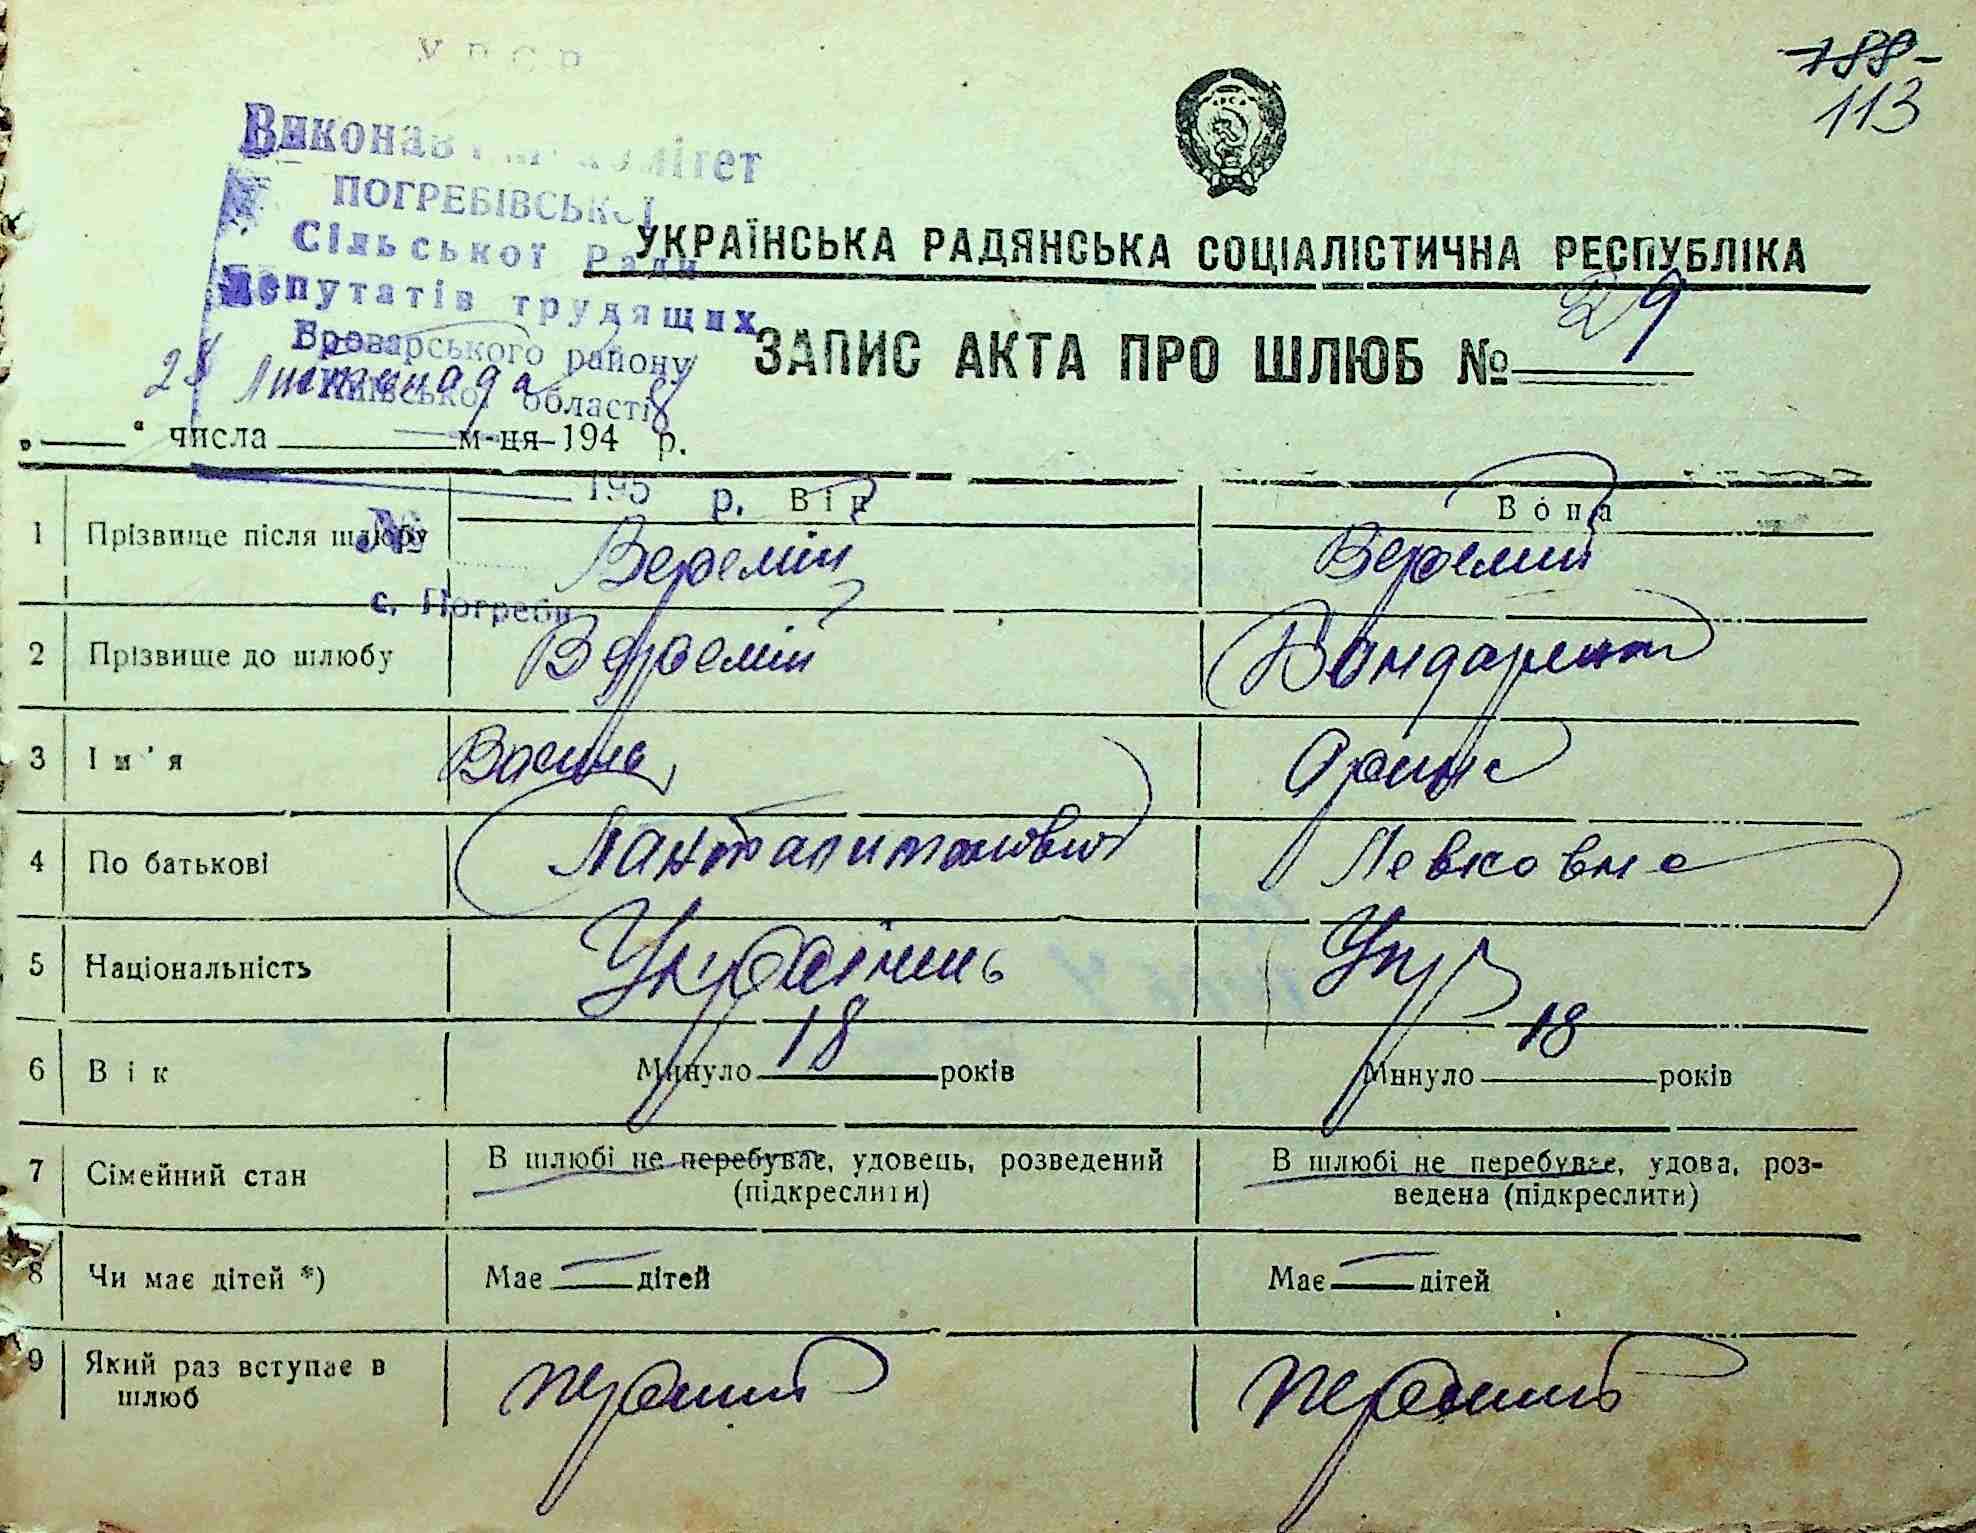 УРСР
188-
113
Виконавчий комітет
ПОГРЕБІВСЬКОЇ
Сільської Ради
Депутатів трудящих
Броварського району
Київської області
195 р.
№
с. Погреби
УКРАЇНСЬКА РАДЯНСЬКА СОЦІАЛІСТИЧНА РЕСПУБЛІКА
ЗАПИС АКТА ПРО ШЛЮБ № 29
„28“ числа Листопада м-ця 1948 р.
Він Вона
1 Прізвище після шлюбу Веремій Веремий
2 Прізвище до шлюбу Веремій Бондаренко
3 Ім'я Василь Орина
4 По батькові Пантелимонович Левковна
5 Національність Українець Укр
6 Вік Минуло 18 років Минуло 18 років
7 Сімейний стан В шлюбі не перебуває, удовець, розведений В шлюбі не перебуває, удова, роз-
(підкреслити) ведена (підкреслити)
8 Чи має дітей *) Має — дітей Має — дітей
9 Який раз вступає в первий первий
шлюб